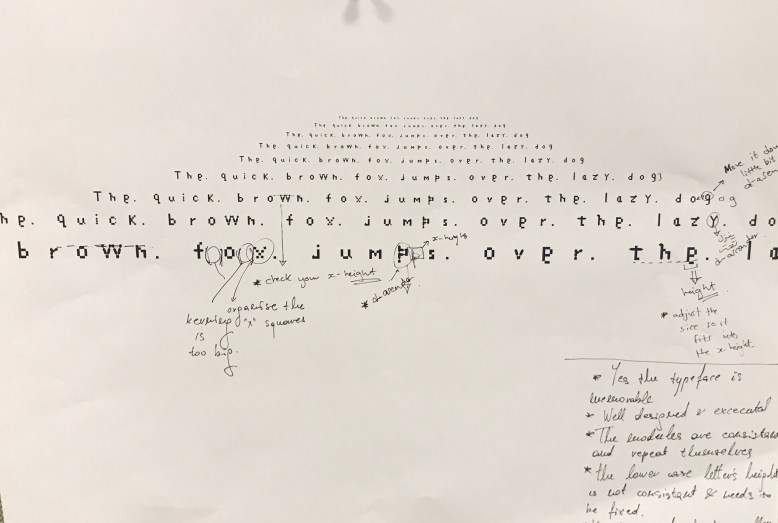 The quick brown fox jumps over. the lazy. dog
The quick brown fox. jumps. over. the. lazy. dog
The. quick. brown. fox. jumps. over. the. lazy. dog
The. quick. brown. fox. jumps. over. the. lazy. dog
The. quick. brown. fox. jumps. over. the. lazy. dog
The. quick. brown. fox. jumps. over. the. lazy. dog
The. quick. brown. fox. jumps. over. the. lazy. dog
he. quick. brown. fox. jumps. over. the. lazy. do
brown. fox. jumps. over. the. la
Move it down
little bit
x-height
* check your x-height
kerning
is
too big.
organise the
"x" squares
height
* adjust the
size so it
fits into
the x-height.
* Yes the typeface is
memorable
* Well designed &
* The modules are
and repeat themselves
* the lower case letter's height
is not consistant & needs to
be fixed.